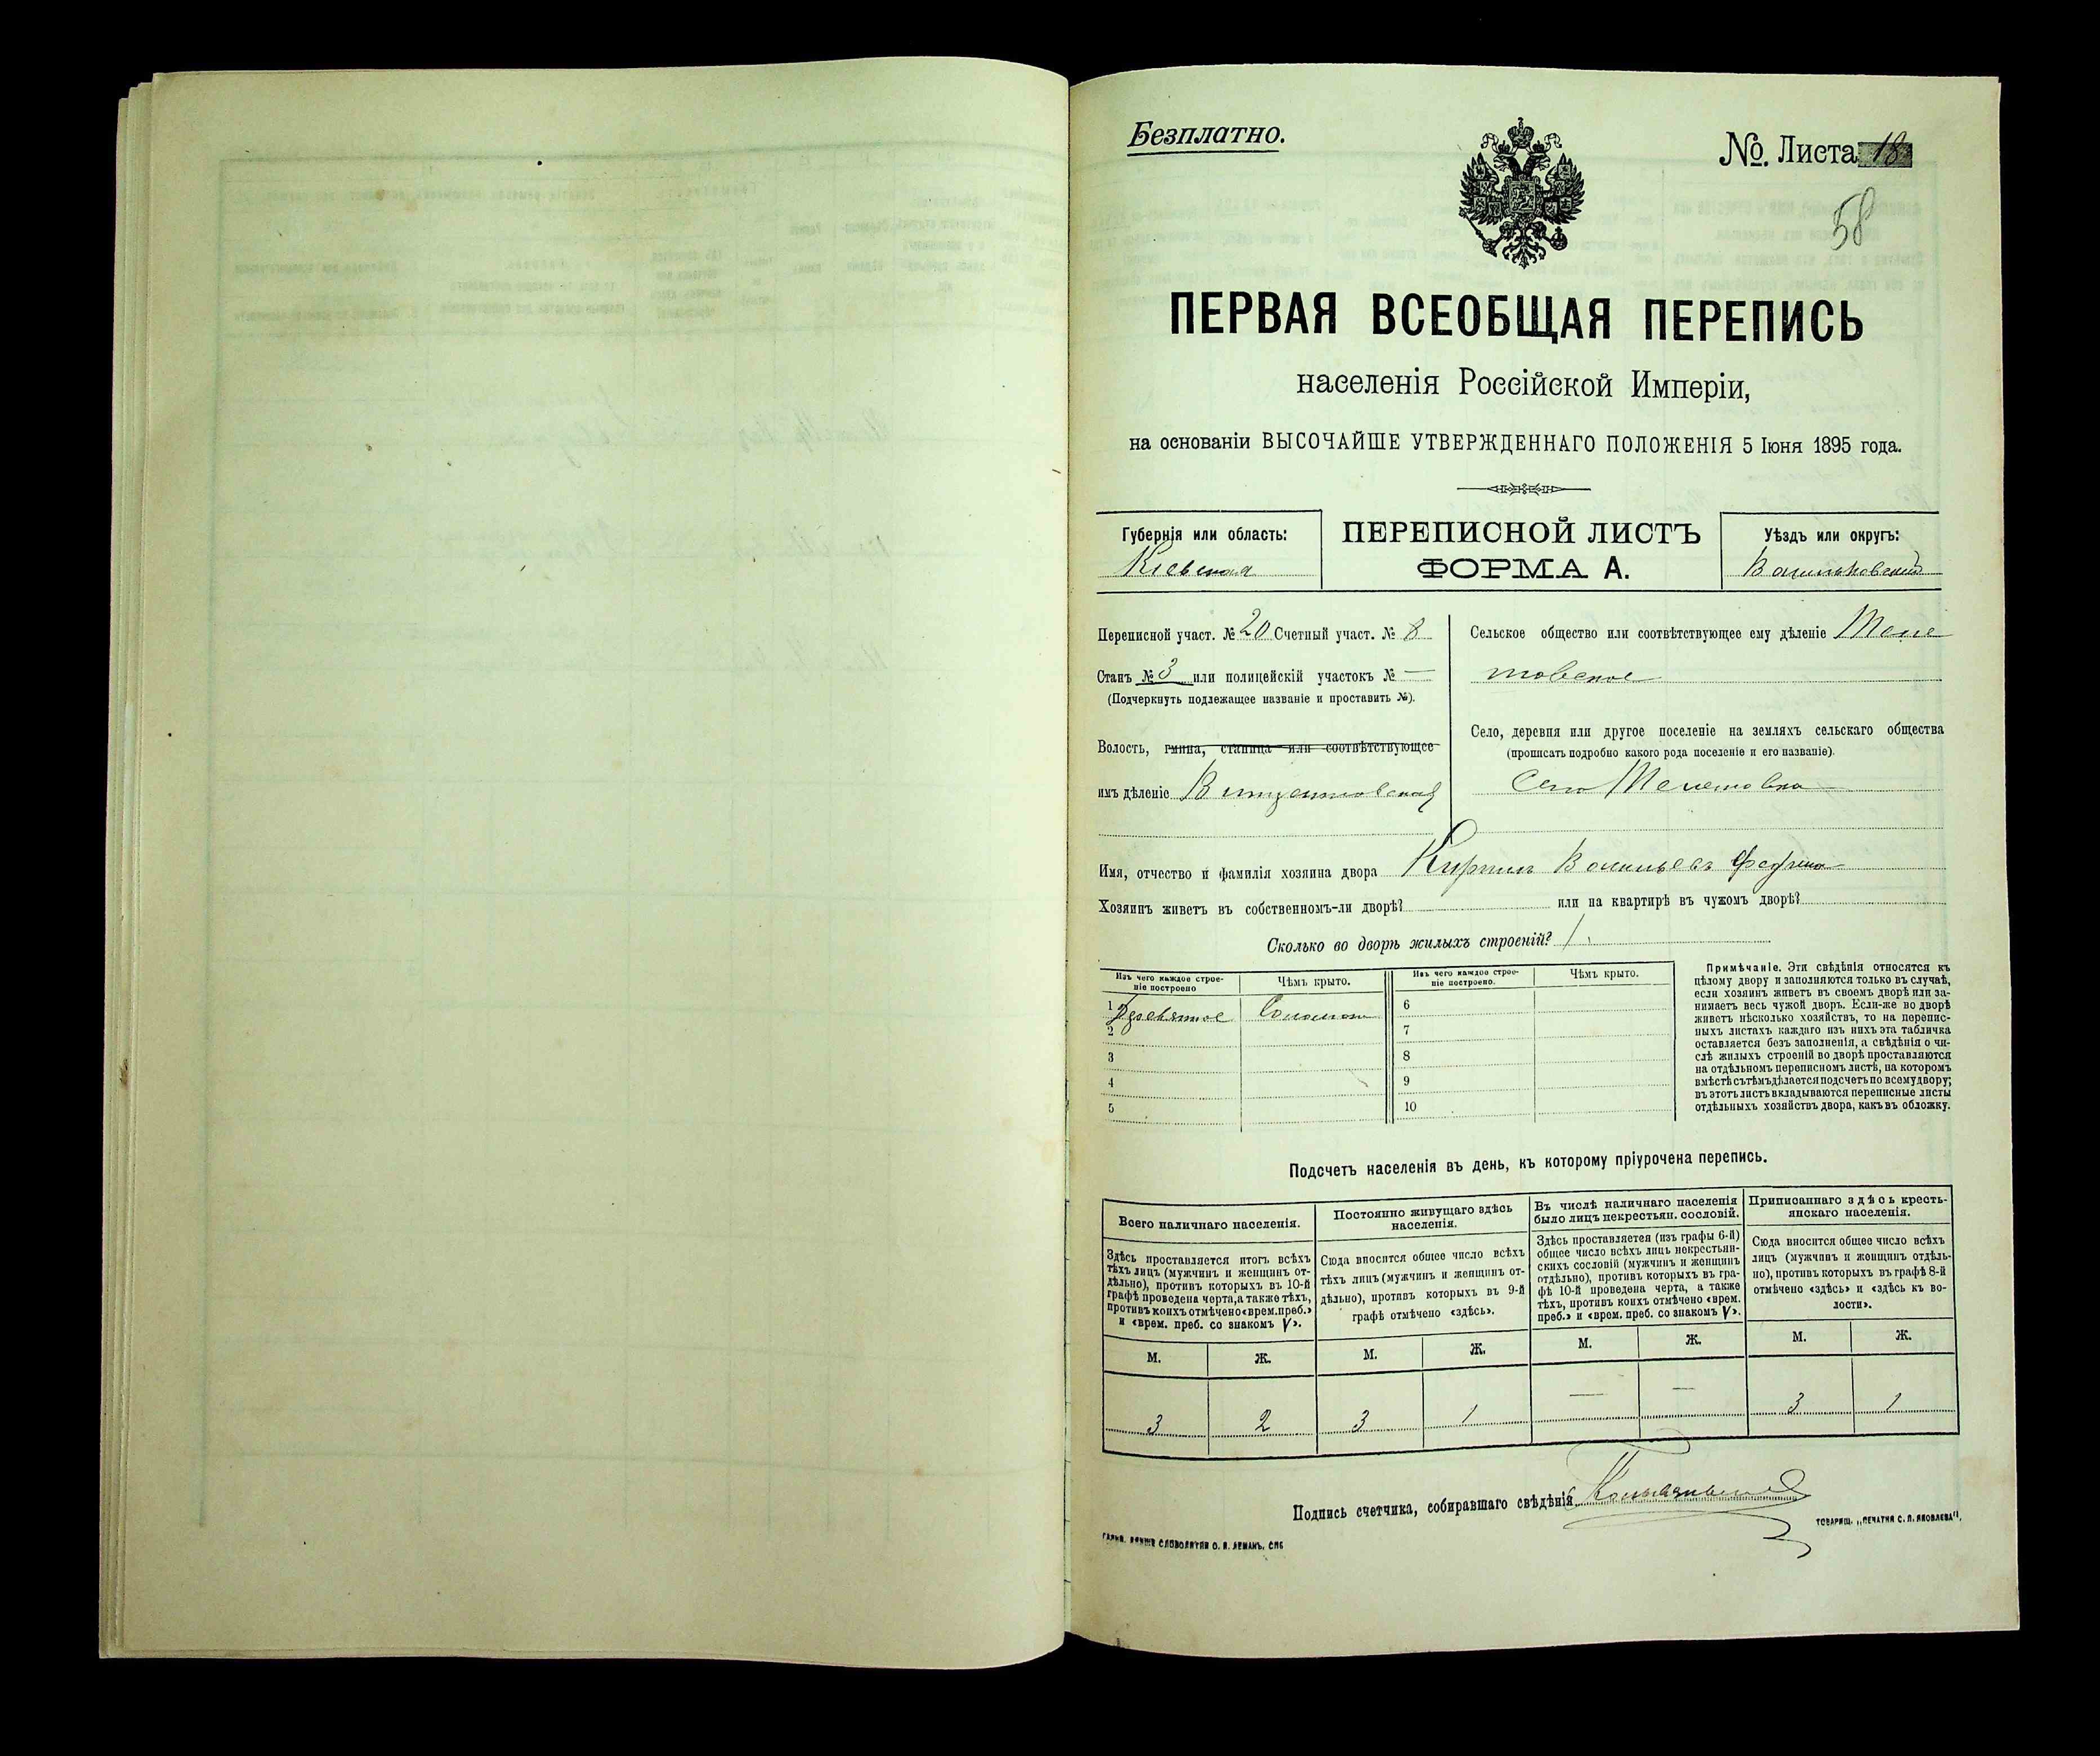 Безплатно.
№. Листа 18
58
ПЕРВАЯ ВСЕОБЩАЯ ПЕРЕПИСЬ
населенія Россійской Имперіи,
на основаніи ВЫСОЧАЙШЕ УТВЕРЖДЕННАГО ПОЛОЖЕНІЯ 5 Іюня 1895 года.
Губернія или область:
Кіевская
ПЕРЕПИСНОЙ ЛИСТЪ
ФОРМА А.
Уѣздъ или округъ:
Васильковскій
Переписной участ. № 20 Счетный участ. № 8
Станъ № 3 или полицейскій участокъ № —
(Подчеркнуть подлежащее названіе и проставить №).
Волость, гмина, станица или соотвѣтствующее
имъ дѣленіе
Сельское общество или соотвѣтствующее ему дѣленіе
Село, деревня или другое поселеніе на земляхъ сельскаго общества
(прописать подробно какого рода поселеніе и его названіе).
Село
Имя, отчество и фамилія хозяина двора Кирилъ Васильевъ
Хозяинъ живетъ въ собственномъ-ли дворѣ? или на квартирѣ въ чужомъ дворѣ?
Сколько во дворѣ жилыхъ строеній? 1.
Изъ чего каждое строе-
ніе построено
Чѣмъ крыто.
Изъ чего каждое строе-
ніе построено.
Чѣмъ крыто.
1 Деревянное Соломою
2
3
4
5
6
7
8
9
10
Примѣчаніе. Эти свѣдѣнія относятся къ
цѣлому двору и заполняются только въ случаѣ,
если хозяинъ живетъ въ своемъ дворѣ или за-
нимаетъ весь чужой дворъ. Если-же во дворѣ
живетъ нѣсколько хозяйствъ, то на перепис-
ныхъ листахъ каждаго изъ нихъ эта табличка
оставляется безъ заполненія, а свѣдѣнія о чи-
слѣ жилыхъ строеній во дворѣ проставляются
на отдѣльномъ переписномъ листѣ, на которомъ
вмѣстѣ съ тѣмъ дѣлается подсчетъ по всему двору;
въ этотъ листъ вкладываются переписные листы
отдѣльныхъ хозяйствъ двора, какъ въ обложку.
Подсчетъ населенія въ день, къ которому пріурочена перепись.
Всего наличнаго населенія.
Здѣсь проставляется итогъ всѣхъ
тѣхъ лицъ (мужчинъ и женщинъ от-
дѣльно), противъ которыхъ въ 10-й
графѣ проведена черта, а также тѣхъ,
противъ коихъ отмѣчено «врем. преб.»
и «врем. преб. со знакомъ V».
Постоянно живущаго здѣсь
населенія.
Сюда вносится общее число всѣхъ
тѣхъ лицъ (мужчинъ и женщинъ от-
дѣльно), противъ которыхъ въ 9-й
графѣ отмѣчено «здѣсь».
Въ числѣ наличнаго населенія
было лицъ некрестьян. сословій.
Здѣсь проставляется (изъ графы 6-й)
общее число всѣхъ лицъ некрестьян-
скихъ сословій (мужчинъ и женщинъ
отдѣльно), противъ которыхъ въ гра-
фѣ 10-й проведена черта, а также
тѣхъ, противъ коихъ отмѣчено «врем.
преб.» и «врем. преб. со знакомъ V».
Приписаннаго здѣсь кресть-
янскаго населенія.
Сюда вносится общее число всѣхъ
лицъ (мужчинъ и женщинъ отдѣль-
но), противъ которыхъ въ графѣ 8-й
отмѣчено «здѣсь» и «здѣсь къ во-
лости».
М. Ж. М. Ж. М. Ж. М. Ж.
3 2 3 1 — — 3 1
Подпись счетчика, собиравшаго свѣдѣнія
СЛОВОЛИТНЯ О. И. ЛЕМАНЪ, СПБ
ТОВАРИЩ. „ПЕЧАТНЯ С. П. ЯКОВЛЕВА".